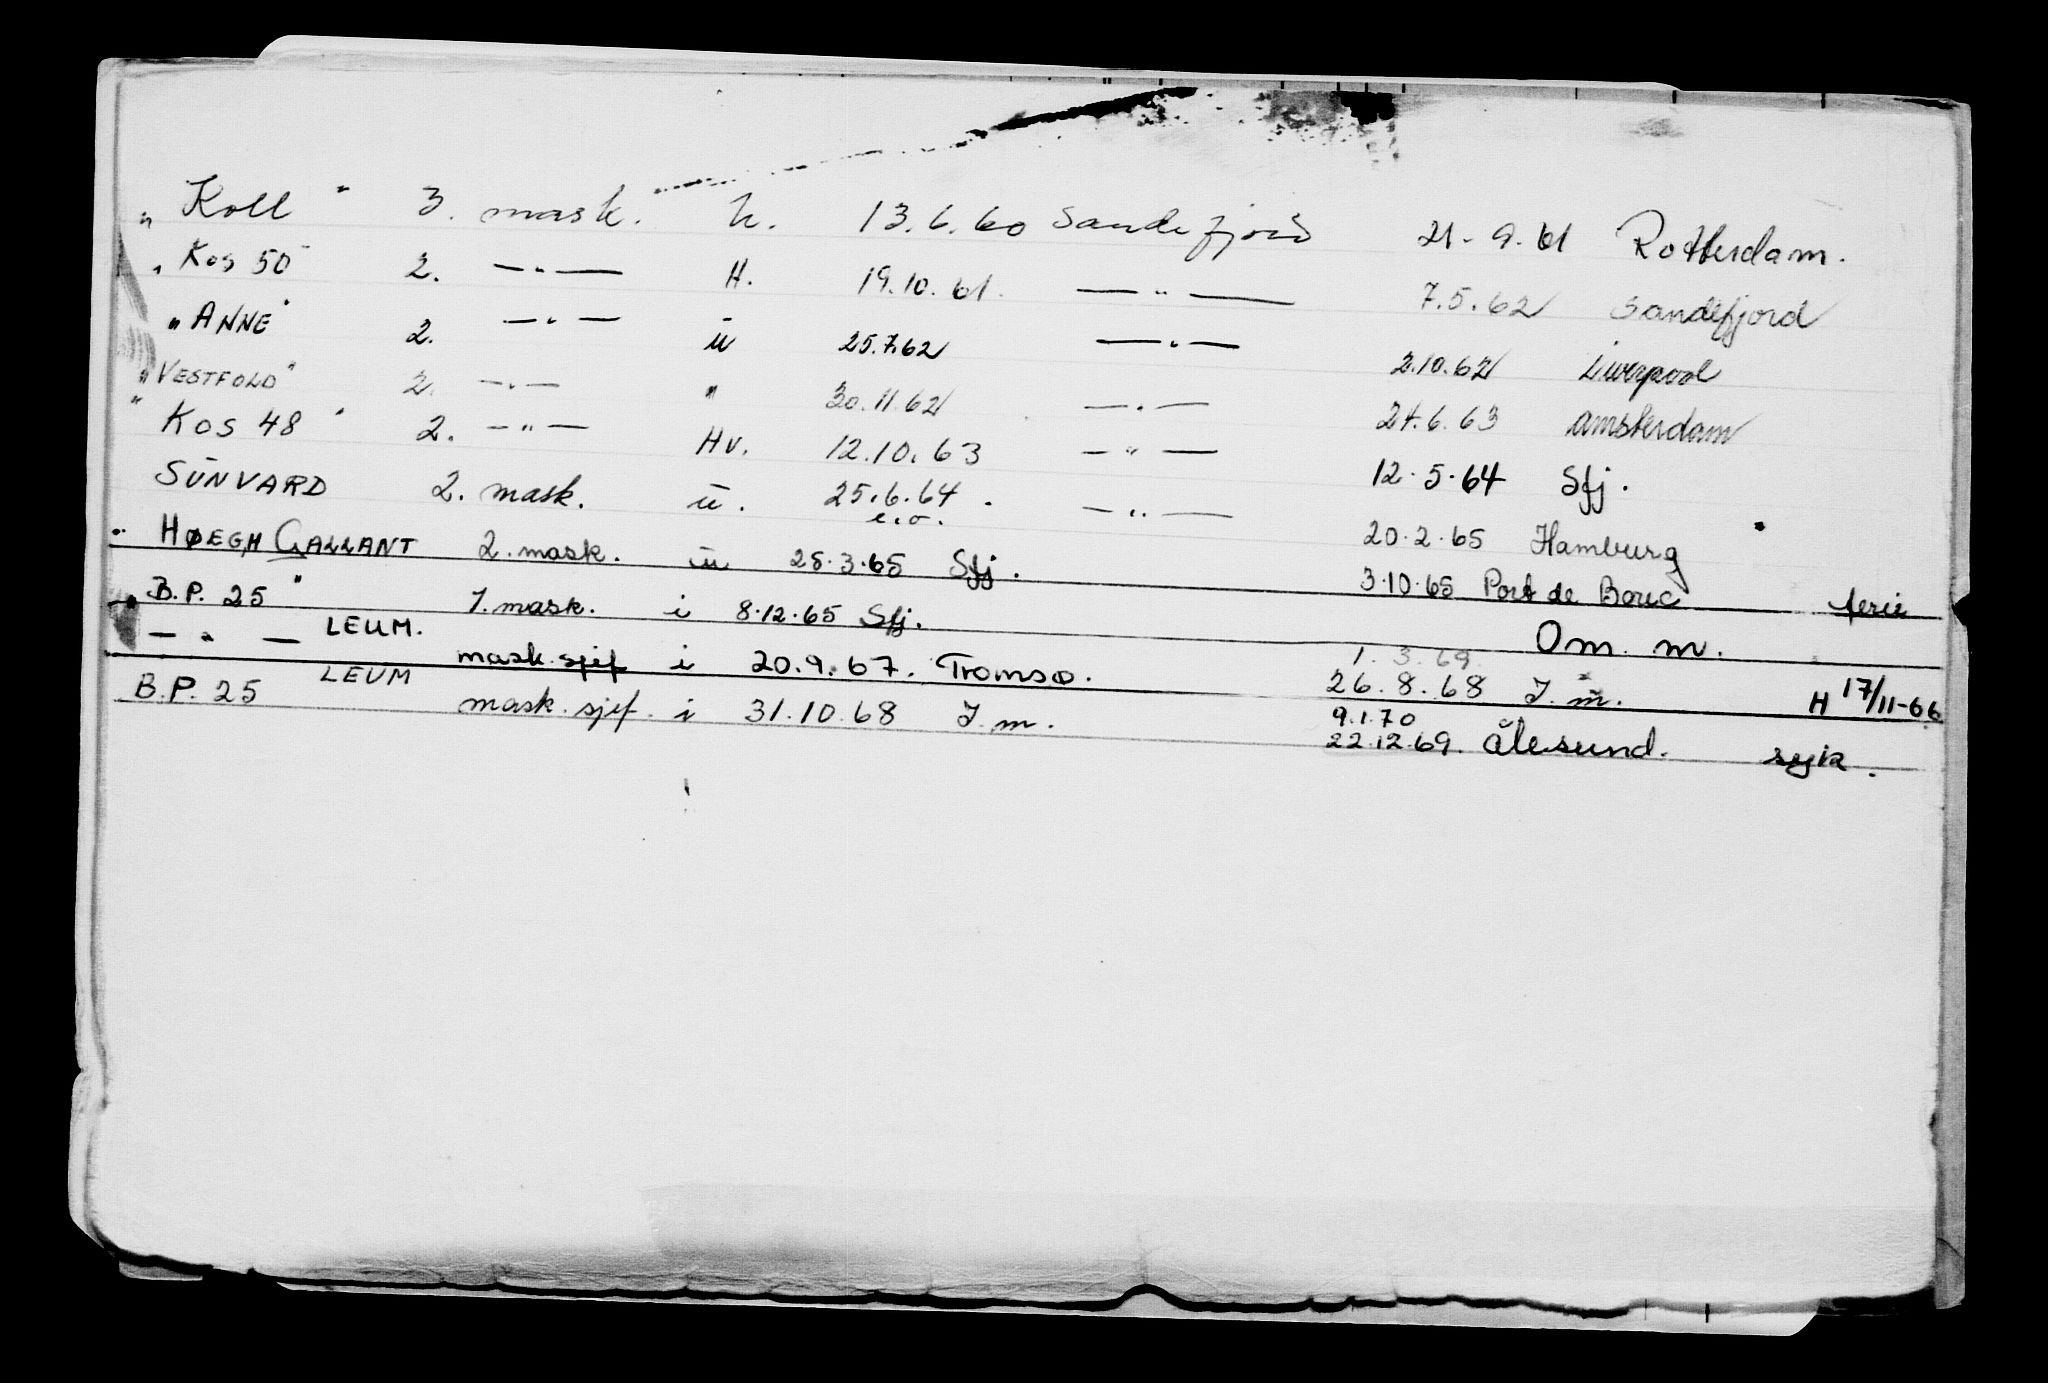 „ Koll " 3. mask. u. 13.6.60 Sandefjord 21-9.61 Rotterdam.
„ Kos 50 " 2. — " — H. 19.10.61. — " — 7.5.62 Sandefjord
„ ANNE " 2. — " — ū 25.7.62 — " — 2.10.62 Liverpool
„ VESTFOLD " 2. — " — " 30.11.62 — " — 24.6.63 Amsterdam
" Kos 48 " 2. — " — Hv. 12.10.63 — " — 12.5.64 Sfj.
SUNVARD 2. mask. ū. 25.6.64. e.o. — " — 20.2.65 Hamburg
" HØEGH GALLANT 2. mask. ū 28.3.65 Sfj. 3.10.65 Port de Bouc ferie
„ B.P. 25 " 1. mask. i 8.12.65 Sfj. Om. m.
— " — LEUM. mask.sjef i 20.9.67. Tromsø. 1.3.69. 26.8.68 I. m. H 17/11-66
B.P. 25 LEUM mask.sjef. i 31.10.68 I. m. 9.1.70 22.12.69. Ålesund. syk.